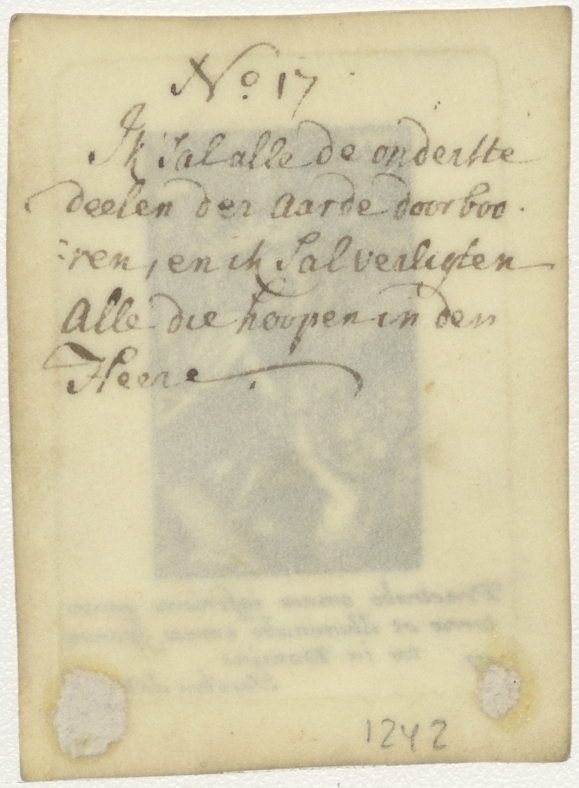 No 17
Ik Sal alle de onderste
deelen der Aarde doorboo
:ren, en ik Sal verligten
Alle die hoopen in den
Heere
1242